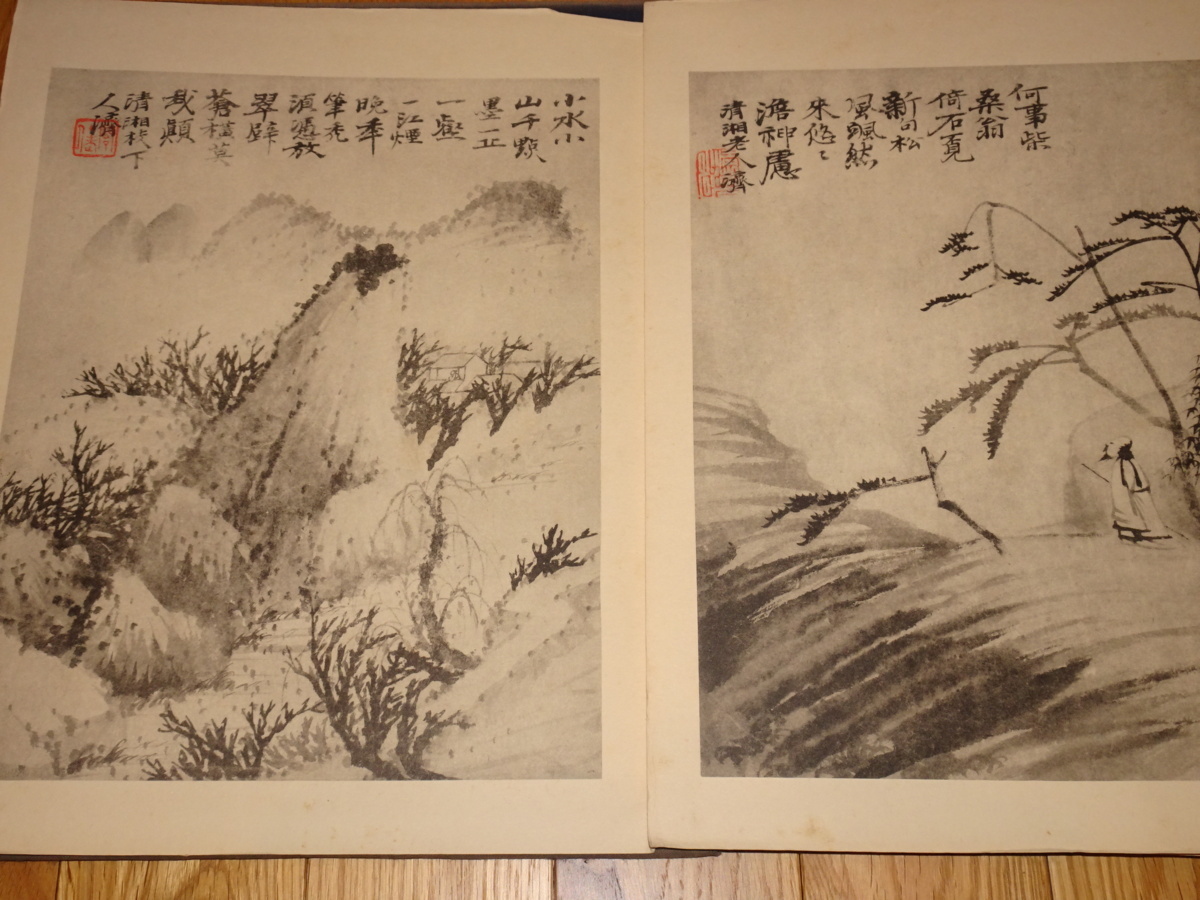 何事柴
桑翁
倚石覓
新句松
風颯然
來悠々
澹神慮
清湘老人濟
小水小
山千點
墨一丘
一壑
一江煙
晚年
筆禿
須憑放
翠擘
蒼橫莫
我顛
清湘枝下
人濟